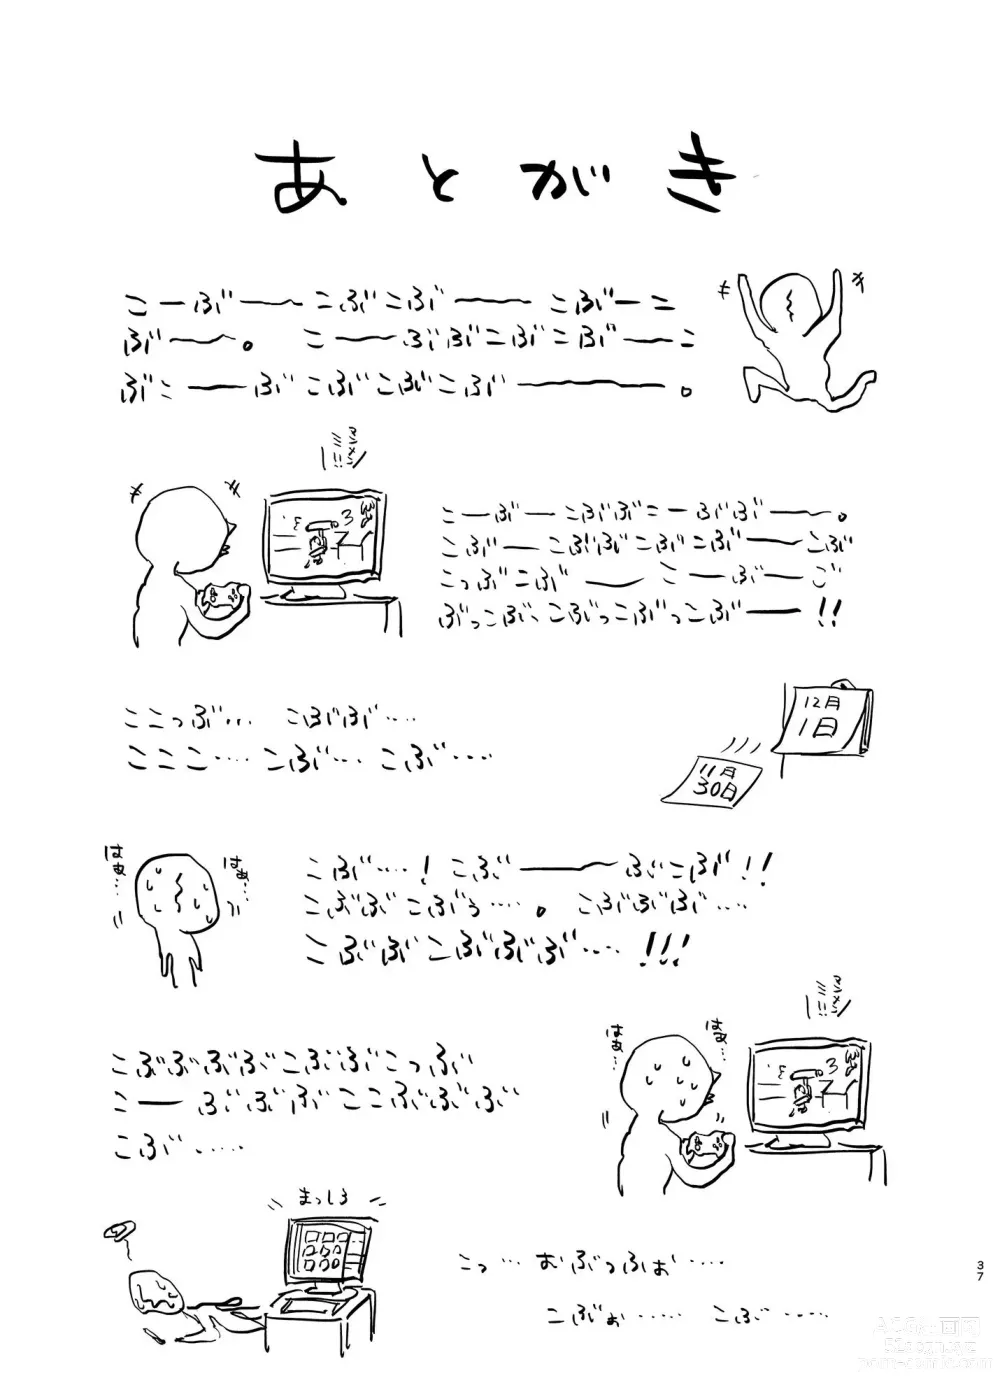 あとがき
こーぶ――こぶこぶ――こぶーこ
ぶ――。 こ――ぶぶこぶこぶ――こ
ぶこ――ぶこぶこぶこぶ――――。
こーぶーこぶぶこーぶぶ――。
こぶ――こぶぶこぶこぶ――こぶ
こっぶこぶ――こーぶーご
ぶっこぶ、こぶっこぶっこぶ――!!
ここっぶ… こぶぶ‥‥
こここ‥‥こぶ…こぶ‥‥
12月
1日
11月
30日
はぁ…
はぁ…
こぶ…! こぶ――ぶこぶ!!
こぶぶこぶぅ‥‥。 こぶぶぶ‥‥
こぶぶこぶぶぶ‥‥!!!
はぁ…
はぁ…
こぶぶぶぶこぶぶこっぶ
こーぶぶぶここぶぶぶ
こぶ‥‥‥
まっしろ
こっ…おぶっふぉ‥‥
こぶぉ‥‥‥ こぶ‥‥‥
37